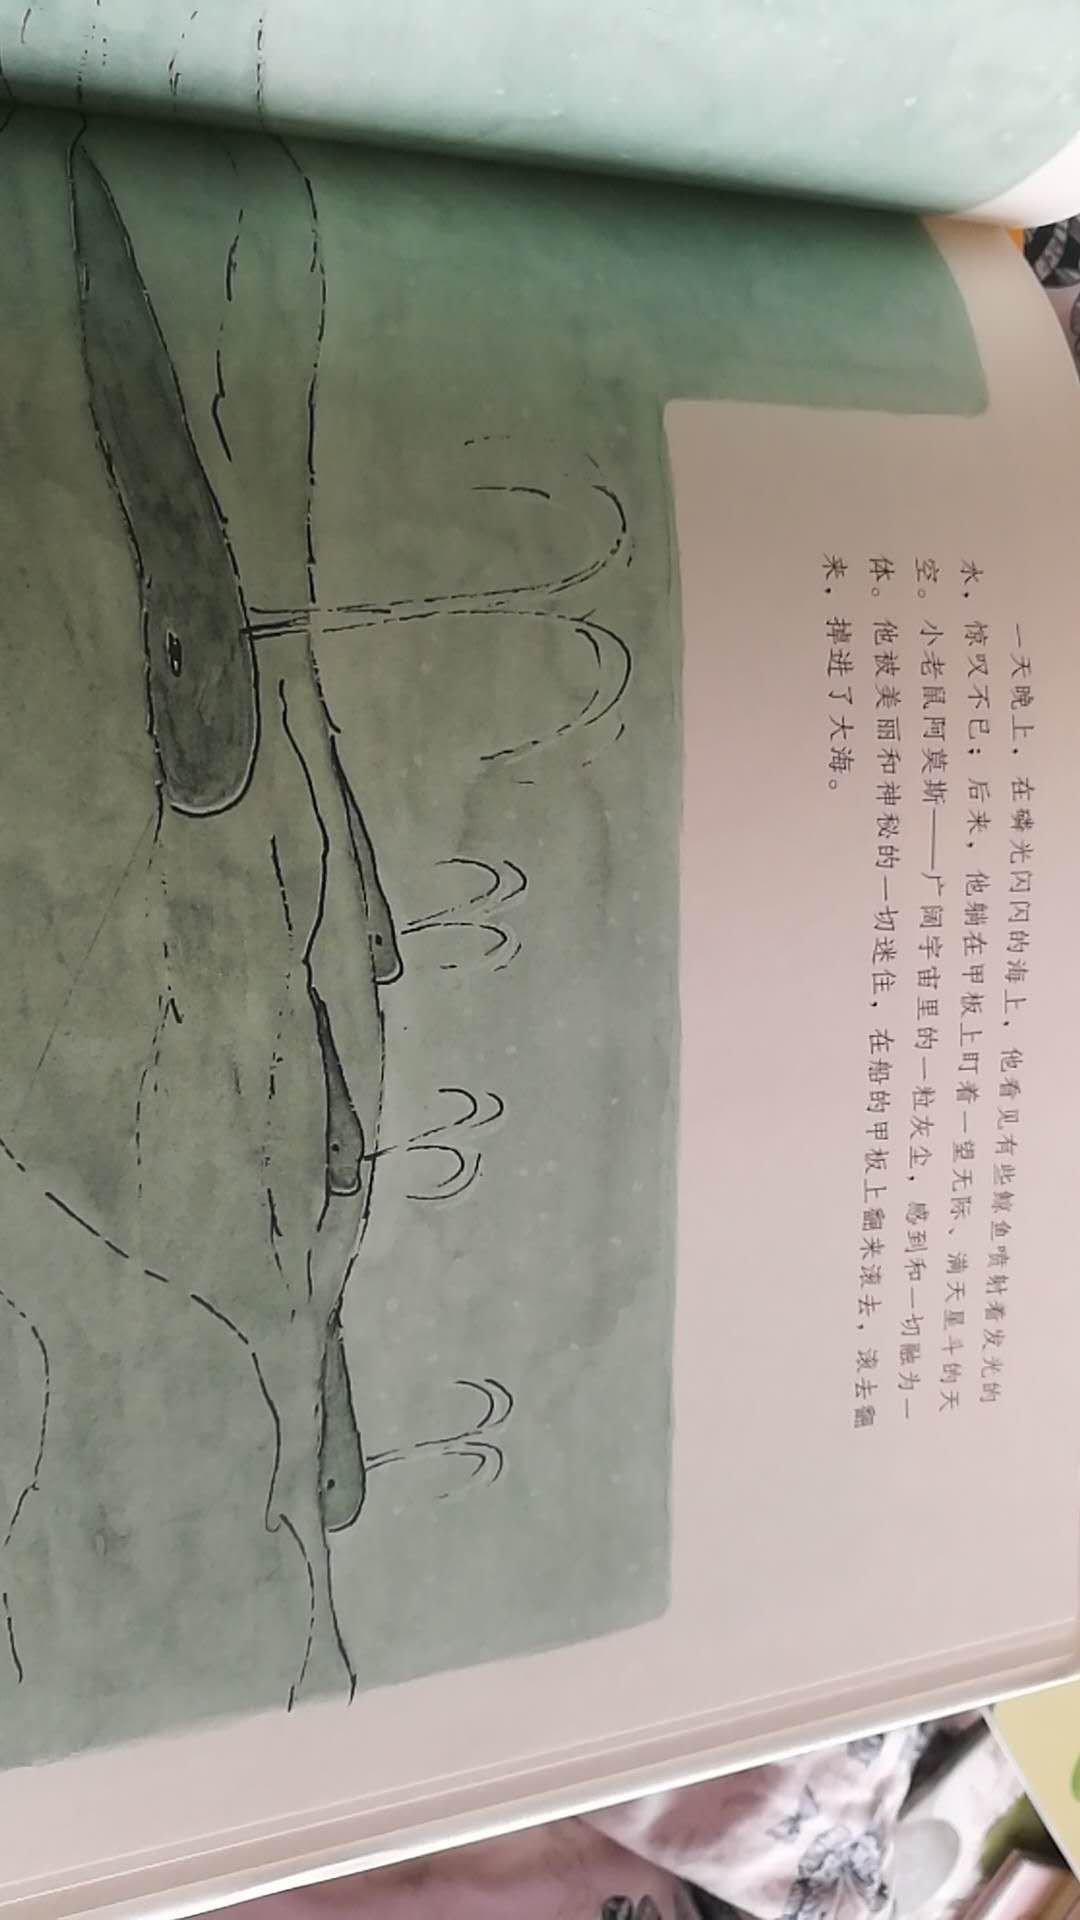 一天晚上，在磷光闪闪的海上，他看见有些鲸鱼喷射着发光的
水，惊叹不已；后来，他躺在甲板上盯着一望无际、满天星斗的天
空。小老鼠阿莫斯——广阔宇宙里的一粒灰尘，感到和一切融为一
体。他被美丽和神秘的一切迷住，在船的甲板上翻来滚去，滚去翻
来，掉进了大海。